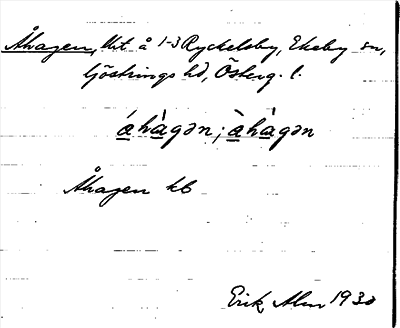 Åhagen, lht å 1-3 Ryckelsby, Ekeby sn,
Göstrings hd, Österg. l.
áhàgən; àhàgən
Åhagen kb
Erik Alm 1930